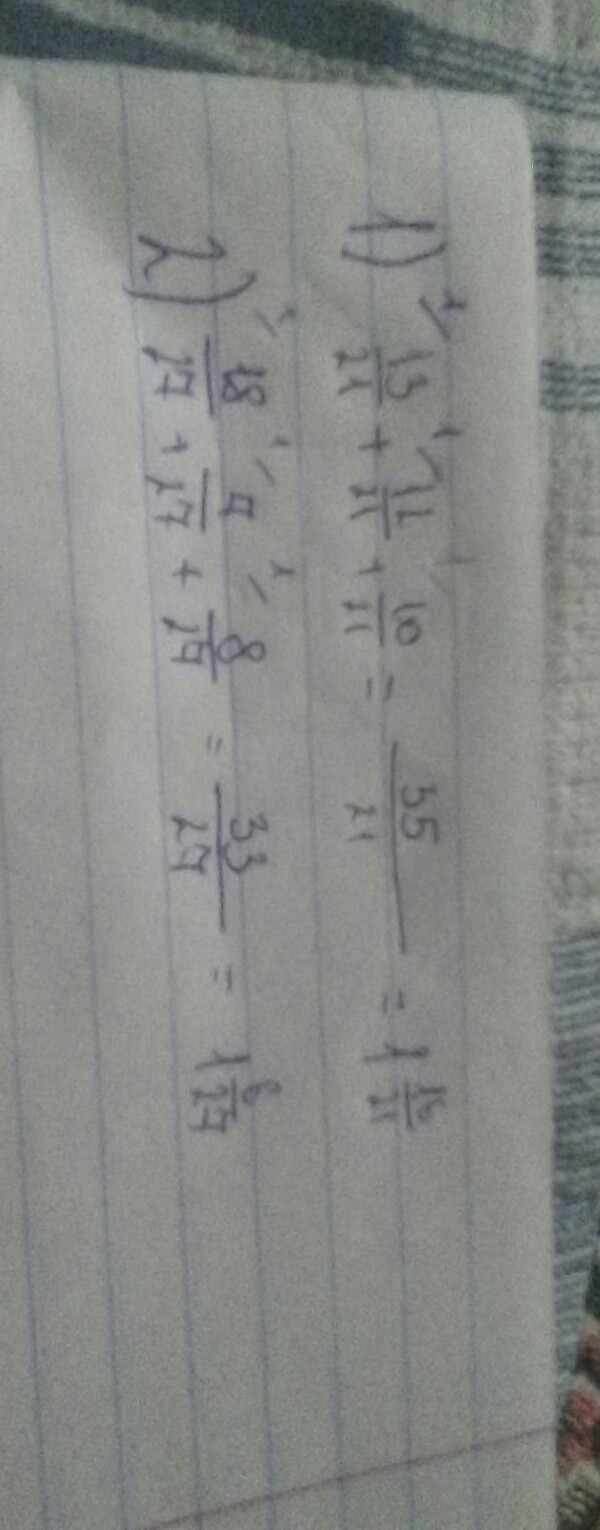 1) 13/21 + 12/21 + 10/21 = 35/21 = 1 16/21
2) 18/27 + 7/27 + 8/27 = 33/27 = 1 6/27